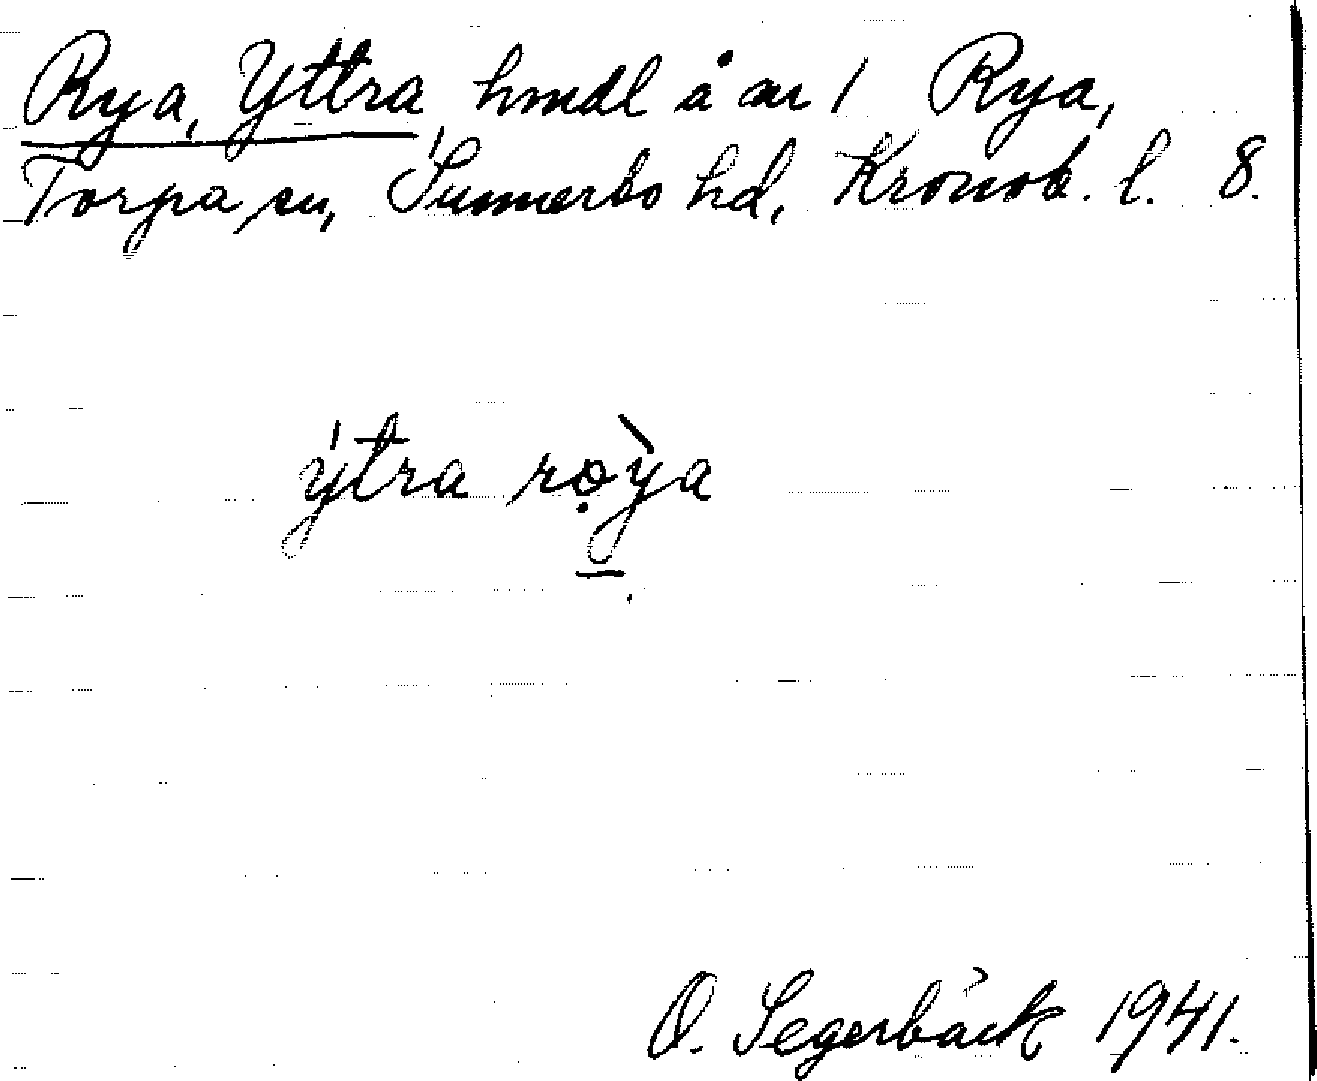 Rya, Yttra, hmdl å nr 1 Rya,
Torpa sn, Sunnerbo hd, Kronob. l. 8.
ýtra rọ̀ya
O. Segerbäck 1941.